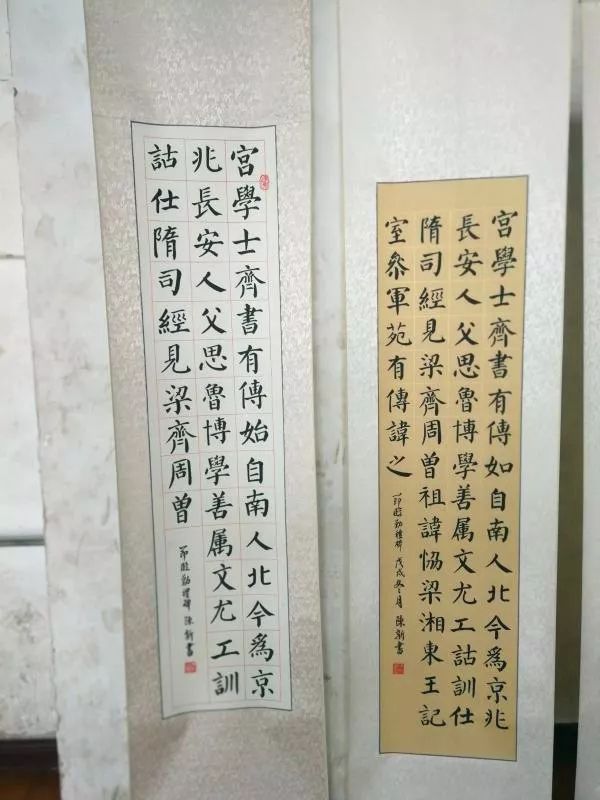 宮學士齊書有傳如自南人北今爲京兆
長安人父思魯博學善属文尤工詁訓仕
隋司經見梁齊周曾祖諱恊梁湘東王記
室叅軍苑有傳諱之
節臨勤禮碑 戊戌冬月 陳新書
宮學士齊書有傳始自南人北今爲京
兆長安人父思魯博學善属文尤工訓
詁仕隋司經見梁齊周曾
節臨勤禮碑 陳新書